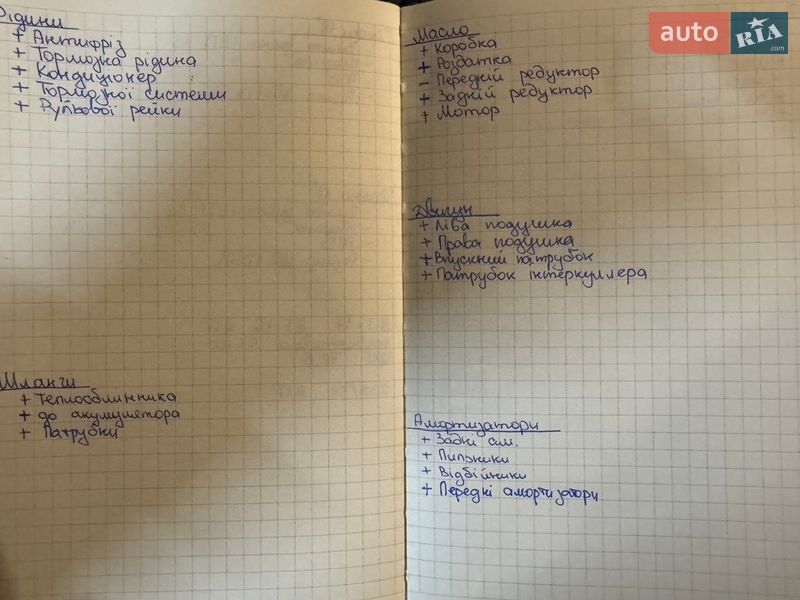 Рідини
+ Антифріз
+ Тормозна рідина
+ Кондиціонер
+ Тормозної системи
+ Рульової рейки
Шланги
+ Теплообмінника
+ до акумулятора
+ Патрубки
Масло
+ Коробка
+ Роздатка
- Передній редуктор
+ Задній редуктор
+ Мотор
Двигун
+ Ліва подушка
+ Права подушка
+ Впускний патрубок
+ Патрубок інтеркуллера
Амортизатори
+ Задні ам.
+ Пильники
+ Відбійники
+ Передні амортизатори
auto RIA.com